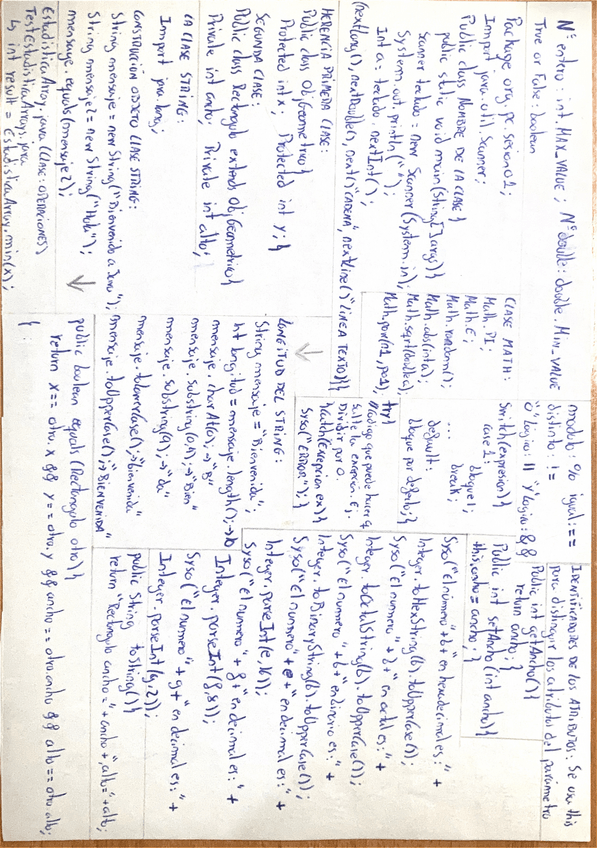 Nº entero: int, MAX_VALUE; Nº double: double. Min_VALUE
True or False: boolean
Package org.pc.sesion01;
Import java.util.Scanner;
Public class NOMBRE DE LA CLASE{
public static void main(String[]args){
Scanner teclado: new Scanner(System.in);
System.out.println(" ");
Int a: teclado.nextInt();
(nextLong(), nextDouble(), next()"CADENA", nextLine()"LINEA TEXTO)}}
CLASE MATH:
Math.PI;
Math.E;
Math.random();
Math.abs(int a);
Math.sqrt(double a);
Math.pow(n1,pot);
modulo: % igual: ==
distinto: !=
"o" lógico: || "y" lógico: &&
Switch(expresion){
case 1:
bloque1;
break;
...
default:
bloque por defecto;}
try{
Código que puede hacer q
salte la excepción. Ej:
Dividir por 0.
}catch(Exception ex){
Syso("ERROR");}
IDENTIFICADORES DE LOS ATRIBUTOS: Se usa this
para distinguir los atributos del parámetro
Public int getAncho(){
return ancho;}
Public int setAncho(int ancho){
this.ancho = ancho;}
HERENCIA PRIMERA CLASE:
Public class ObjGeometrico{
Protected int x; Protected int y;}
SEGUNDA CLASE:
Public class Rectangulo extends ObjGeometrico{
Private int ancho; Private int alto;
LA CLASE STRING:
Import java.lang;
CONSTRUCCIÓN OBJETO CLASE STRING:
String mensaje = new String("Bienvenido a Java");
String mensaje2 = new String("Hola");
mensaje.equals(mensaje2);
EstadisticaArray.java (CLASE: OPERACIONES)
TestEstadisticaArrays.java
↳ int result = EstadisticaArray.min(x);
LONGITUD DEL STRING:
String mensaje = "Bienvenida";
Int longitud = mensaje.length();→10
mensaje.charAt(0);→"B"
mensaje.substring(0,4);→"Bien"
mensaje.substring(9);→"da"
mensaje.toLowerCase();→"bienvenida"
mensaje.toUpperCase();→"BIENVENIDA"
Syso("El número"+b+"en hexadecimal es:" +
Integer.toHexString(b).toUpperCase());
Syso("El numero"+b+"en octal es:" +
Integer.toOctalString(b).toUpperCase());
Syso("El numero"+b+"en binario es:" +
Integer.toBinaryString(b).toUpperCase());
Syso("El numero"+e+"en decimal es:" +
Integer.parseInt(e,16));
Syso("El numero"+f+"en decimal es:" +
Integer.parseInt(f,8));
Syso("El numero"+g+"en decimal es:" +
Integer.parseInt(g,2));
public String toString(){
return "Rectángulo ancho="+ancho+",alto="+alto;
public boolean equals(Rectangulo otro){
return x==otro.x && y==otro.y && ancho==otro.ancho && alto==otro.alto;
}